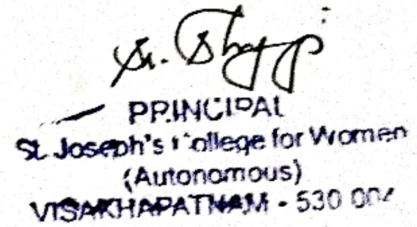 Sr. Shyji
PRINCIPAL
St. Joseph's College for Women
(Autonomous)
VISAKHAPATNAM - 530 004